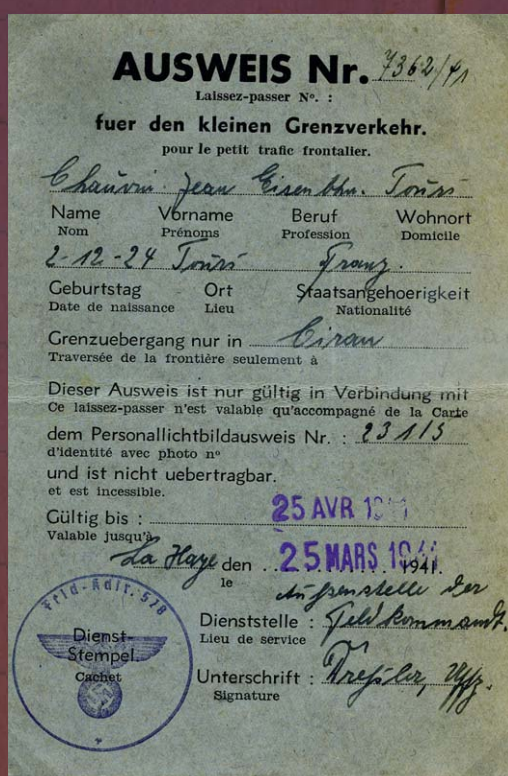 AUSWEIS Nr. 7362/41
Laissez-passer Nº. :
fuer den kleinen Grenzverkehr.
pour le petit trafic frontalier.
Chauvin Jean Eisenbhn. Tours
Name Vorname Beruf Wohnort
Nom Prénoms Profession Domicile
2-12-24 Tours Franz.
Geburtstag Ort Staatsangehoerigkeit
Date de naissance Lieu Nationalité
Grenzuebergang nur in Ciran
Traversée de la frontière seulement à
Dieser Ausweis ist nur gültig in Verbindung mit
Ce laissez-passer n'est valable qu'accompagné de la Carte
dem Personallichtbildausweis Nr. : 23115
d'identité avec photo nº
und ist nicht uebertragbar.
et est incessible.
Gültig bis : 25 AVR
Valable jusqu'à
La Haye den 25 MARS 1941.
le
Außenstelle der
Dienststelle : Feldkommandt.
Lieu de service
Feld-Kdtr. 528
Dienst-
Stempel.
Cachet
Unterschrift : Uffz.
Signature